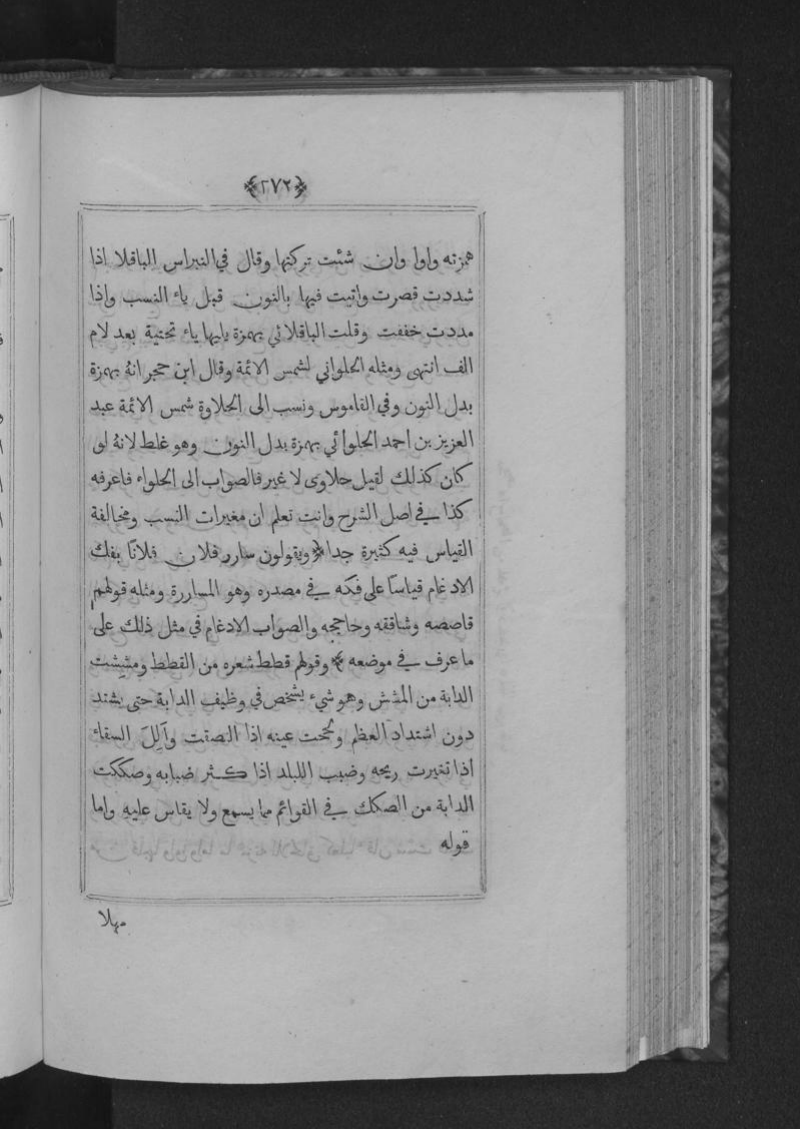 ﴿٢٧٢﴾
همزته واوا وان شئت تركتها وقال في النبراس الباقلا اذا
شددت قصرت واتيت فيها بالنون قبل ياء النسب واذا
مددت خففت وقلت الباقلائي بهمزة يليها ياء تحتية بعد لام
الف انتهى ومثله الحلواني لشمس الائمة وقال ابن حجر انهُ بهمزة
بدل النون وفي القاموس ونسب الى الحلاوة شمس الائمة عبد
العزيز بن احمد الحلوائي بهمزة بدل النون وهو غلط لانهُ لو
كان كذلك لقيل حلاوى لا غير فالصواب الى الحلواء فاعرفه
كذا في اصل الشرح وانت تعلم ان مغيرات النسب ومخالفة
القياس فيه كثيرة جدا ﴿ ويقولون سارر فلان فلانًا بفك
الادغام قياسًا على فكه في مصدره وهو المساررة ومثله قولهم
قاصصه وشاققه وحاججه والصواب الادغام في مثل ذلك على
ما عرف في موضعه ﴾ وقولهم قطط شعره من القطط ومششت
الدابة من المشش وهو شيء يشخص في وظيف الدابة حتى يشتد
دون اشتداد العظم ولححت عينه اذا التصقت وأَلِلَ السقاء
اذا تغيرت ريحه وضبب البلد اذا كثر ضبابه وصككت
الدابة من الصكك في القوائم مما يسمع ولا يقاس عليهِ واما
قوله
مهلا